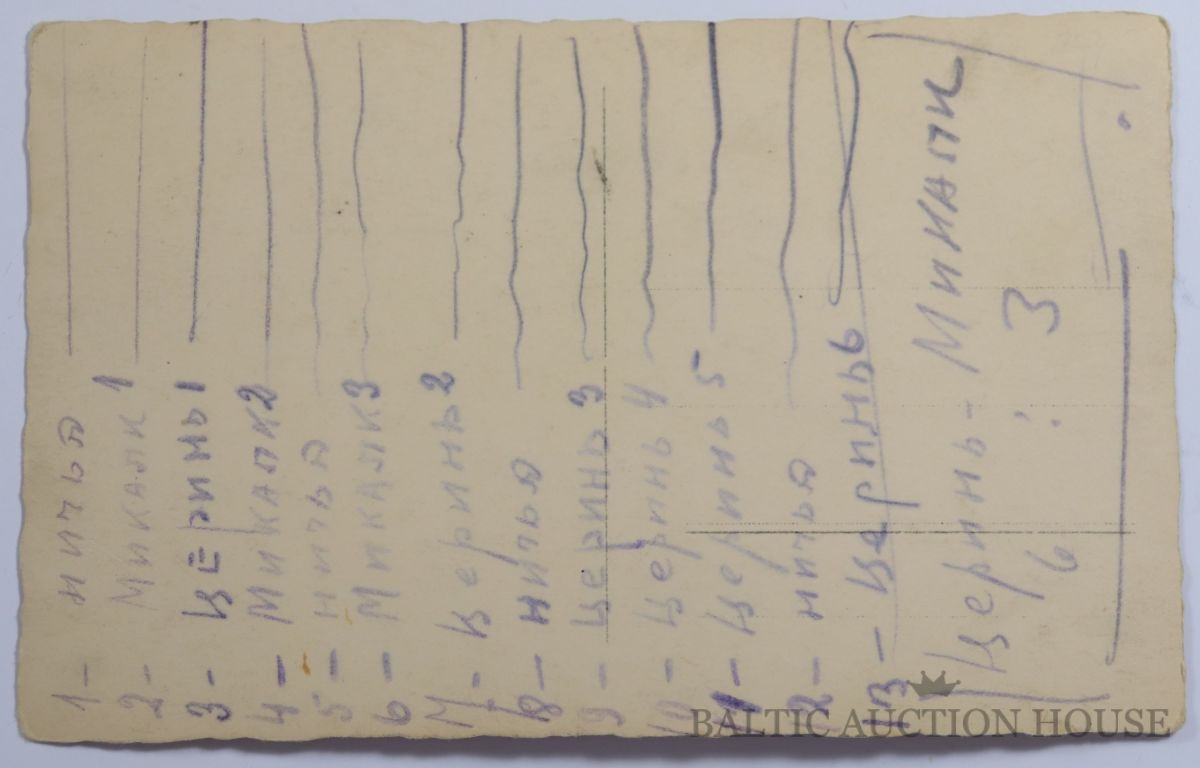 1- ничья
2- Микапк 1
3- ЦЕрины 1
4- Микапк 2
5- ничья
6- Микапк 3
7- Церинь 2
8- ничья
9- Церинь 3
10- Церинь 4
11- Церинь 5
12- ничья
13- Церинь 6
Церинь - Микапк
6 : 3
BALTIC AUCTION HOUSE